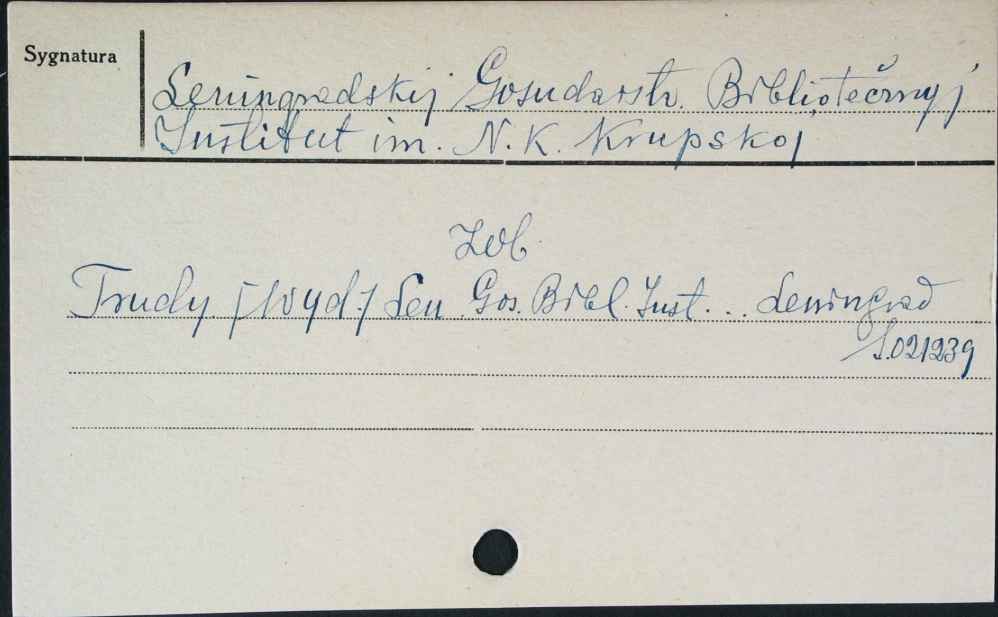 Sygnatura
Leningradskij Gosudarstv. Bibliotečnyj
Institut im. N. K. Krupskoj
Zob.
Trudy [wyd.] Len. Gos. Bibl. Inst. .. Leningrad
S.021239